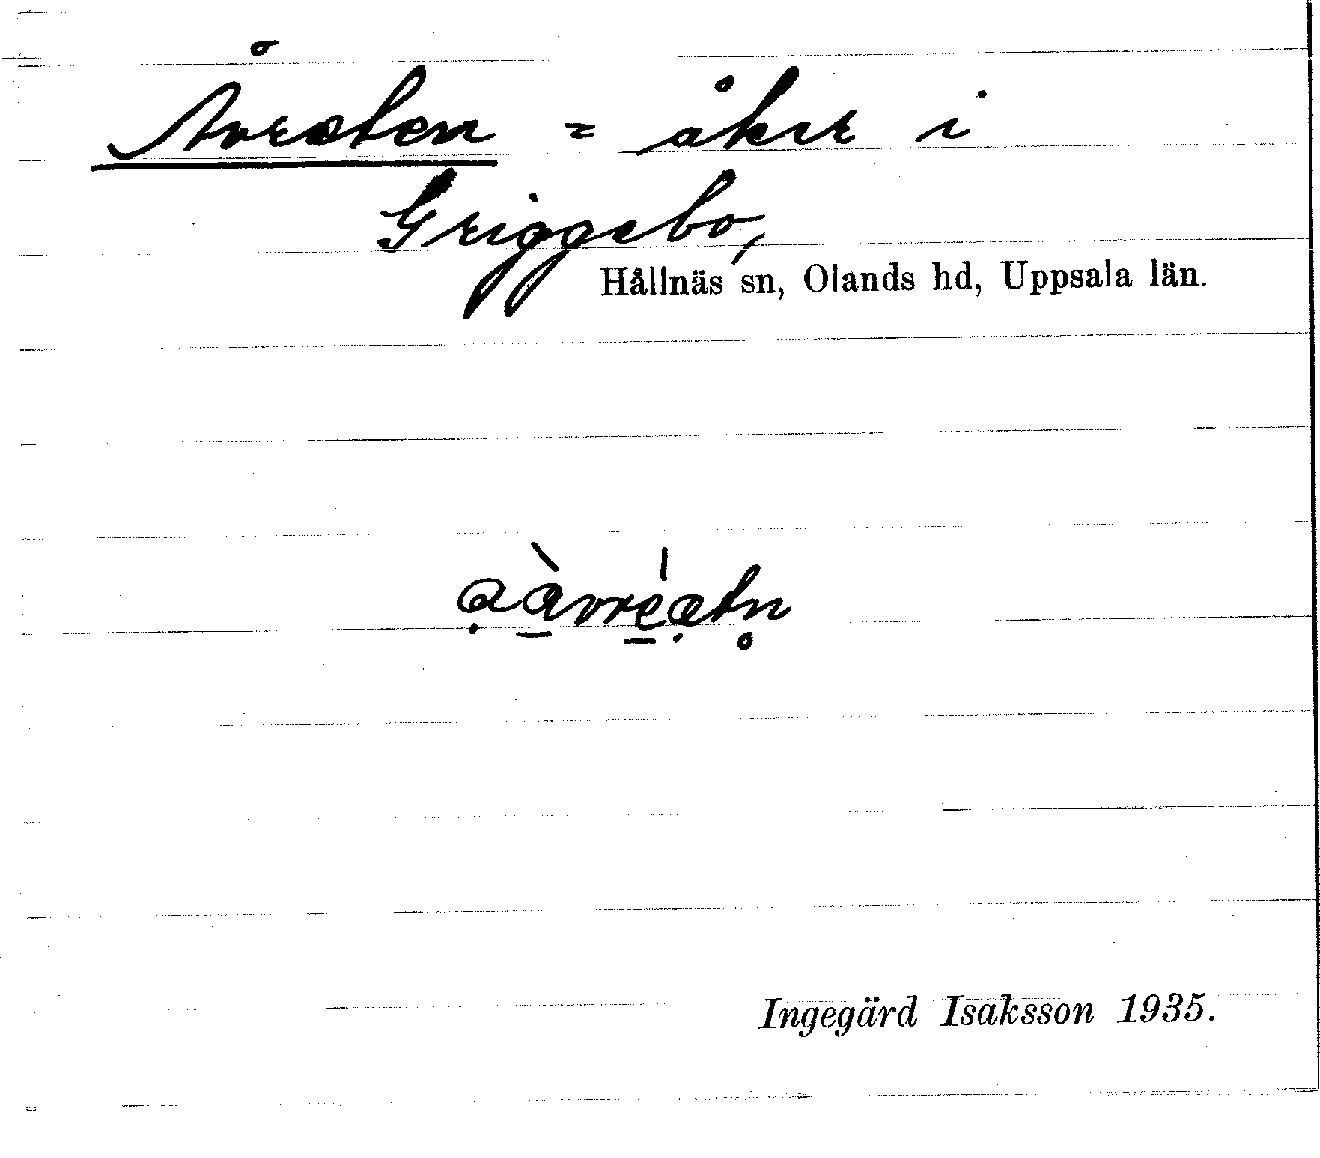 Åvreten = åker i
Griggebo,
Hållnäs sn, Olands hd, Uppsala län.
Ingegärd Isaksson 1935.